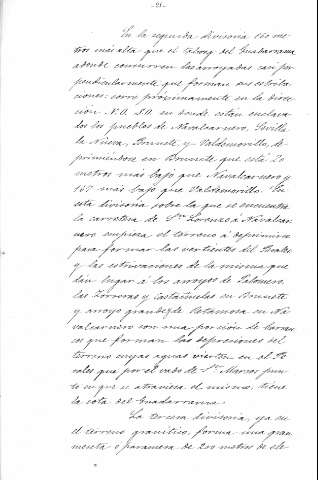 -21-
En la segunda divisoria 160 me-
tros más alta que el thalweg del Guadarrama
adonde concurren los arroyadas casi per-
pendicularmente que forman sus estriba-
ciones; corre próximamente en la direc-
ción N.O. S.O. en donde están enclava-
dos los pueblos de Navalcarnero, Sevilla
la Nueva, Brunete y Valdemorillo, de-
primiéndose en Brunete que está 20
metros más bajo que Navalcarnero y
167 más bajo que Valdemorillo. En
esta divisoria sobre la que se encuentra
la carretera de Sn. Lorenzo á Navalcar-
nero empieza el terreno á deprimirse
para formar las vertientes del Perales
y las estrivaciones de la misma que
dan lugar á los arroyos de Palomero,
las Zorreras y Castañuelas en Brunete
y arroyo grande de Retamosa en Na-
valcarnero con una porción de barran-
cos que forman las depresiones del
terreno cuyas aguas vierten en el Pe-
rales que por el vado de Sn. Marcos pun-
to en que se atraviesa el mismo, tiene
la cota del Guadarrama.
La tercera divisoria, ya en
el terreno granítico, forma una gran
meseta o paramera de 200 metros de ele-